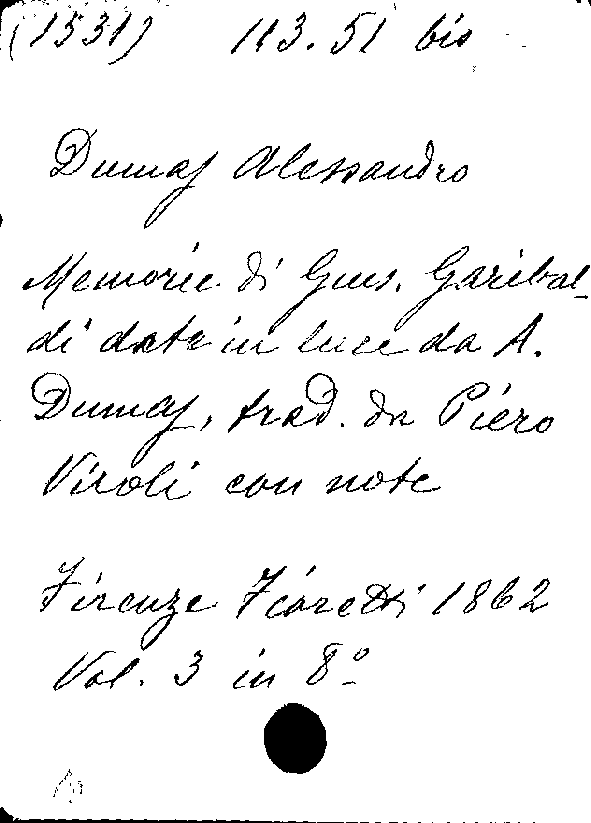 (1531) 113.51 bis
Dumas Alessandro
Memorie di Gius. Garibal-
di date in luce da A.
Dumas, trad. da Piero
Viroli con note
Firenze Fioretti 1862
Vol. 3 in 8º